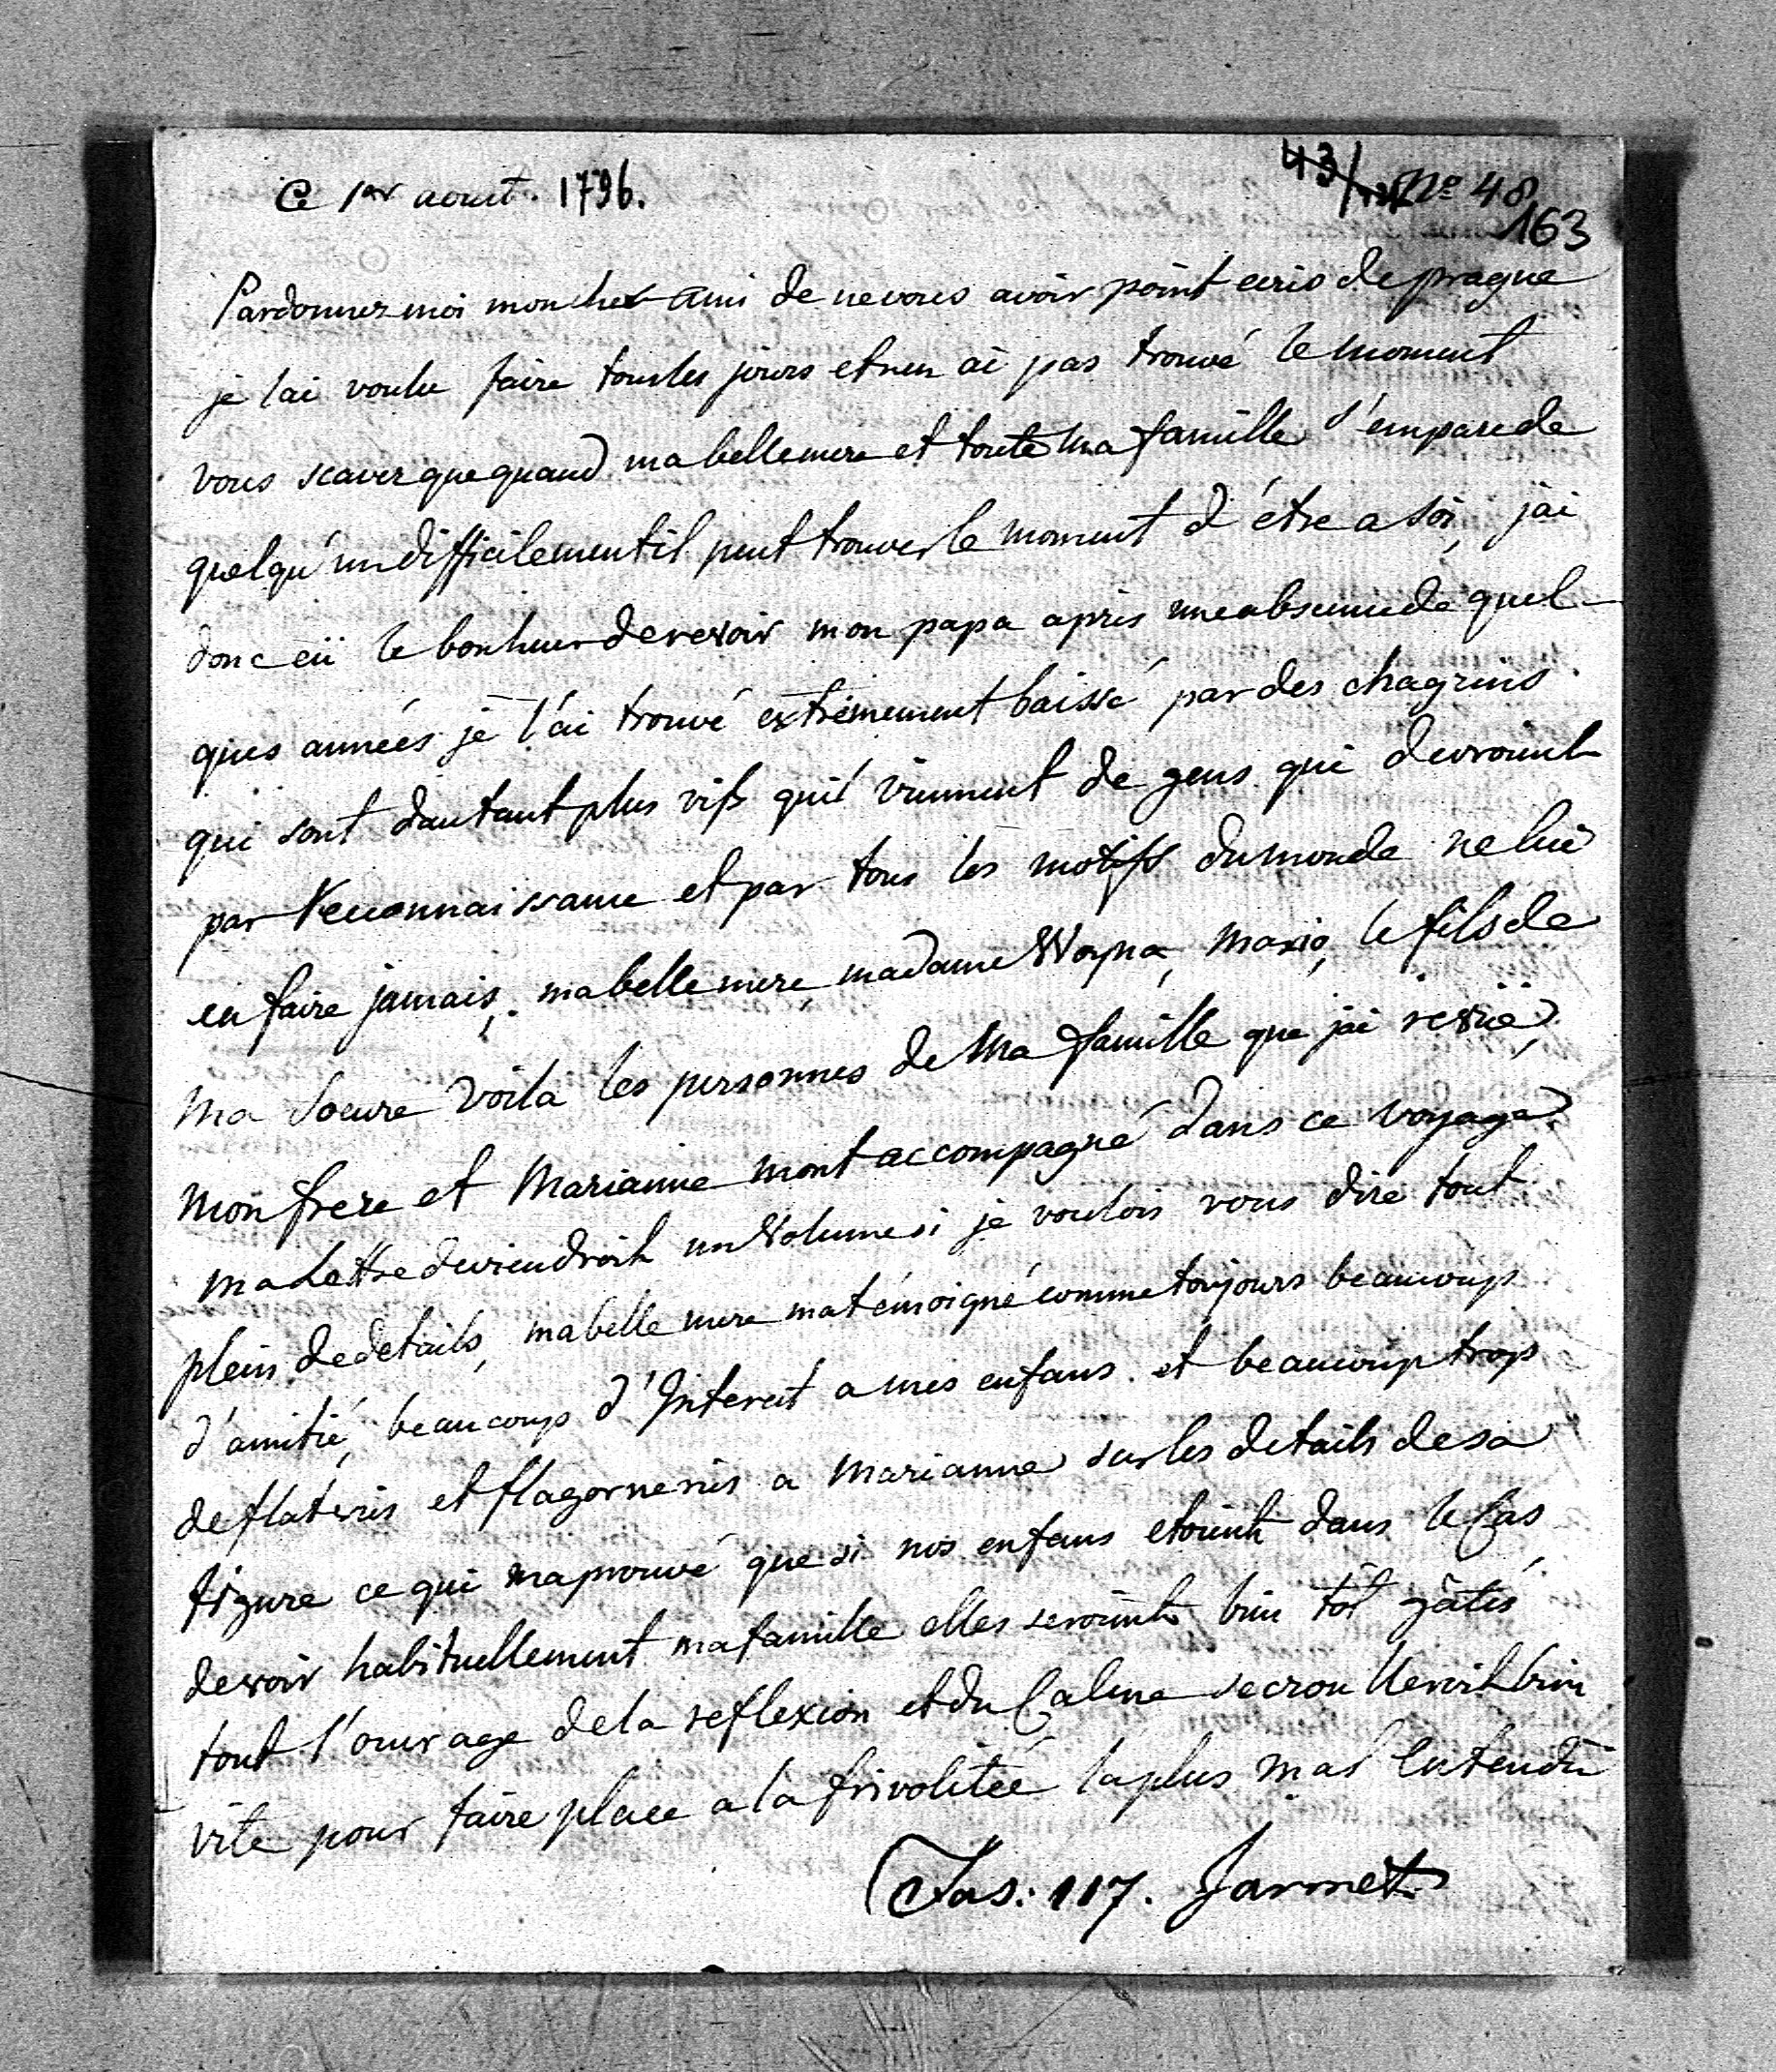 Ce 1er aoust. 1796.
43/
No 48
163
Pardonnez moi mon cher ami de ne vous avoir point ecris de prague
je lai voulu faire tous les jours et nen ai pas trouvé le moment
vous scavez que quand ma belle mere et toute ma famille s'empare de
quelqu'un difficilement il peut trouver le moment d'être a soi, jai
donc eü le bonheur de revoir mon papa apris une absence de quel-
ques années je l'ai trouvé extrémement baissé par des chagrins
qui sont dautant plus vifs quil viennent de gens qui devroient
par reconnaissance et par tous les motifs du monde ne lui
en faire jamais, ma belle mere, madame Woyna, maxio, le fils de
ma soeure voila les personnes de ma famille que jai revüe,
mon frere et Marianne mont accompagné dans ce voyage
ma lettre deviendroit un volume si je voulois vous dire tout
plein de details, ma belle mere ma témoigné comme toujours beaucoup
d'amitié, beaucoup d'Intereit a mes enfans et beaucoup trop
de flateries et flagorneries a Marianne sur les details de sa
figure ce qui ma prouvé que si nos enfans etoient dans le Cas
de voir habituellement ma famille elles seroient bien tôt gâtés
tout l'ouvrage de la reflexion et du Calme secrouleroit bien
vite pour faire place a la frivolitée la plus mal Entendu
Fas: 117. Jarmet